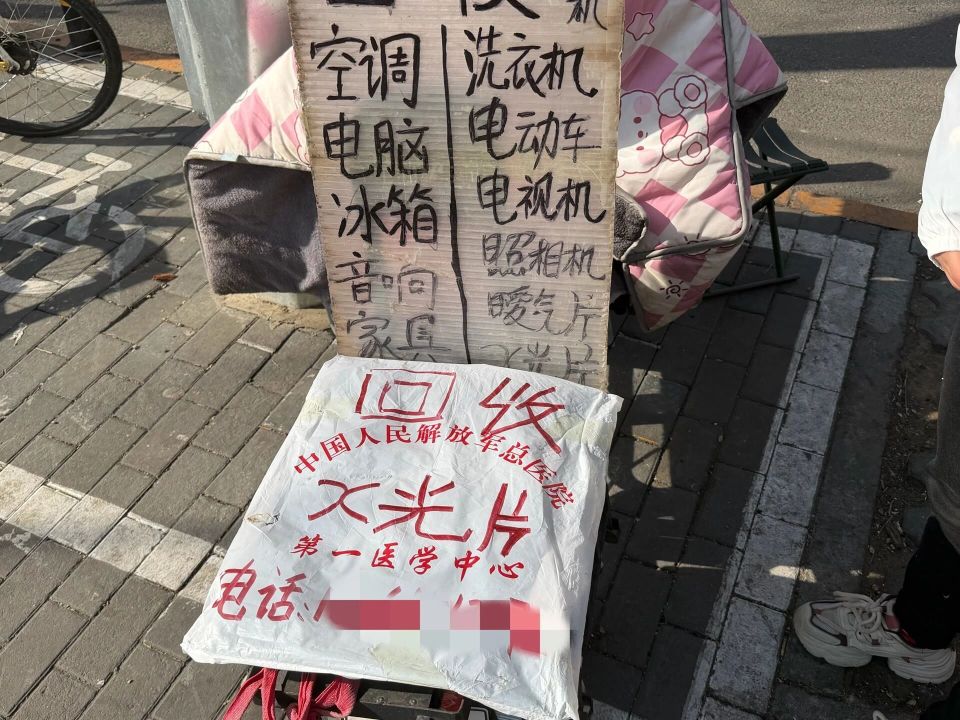 空调
电脑
冰箱
音响
家具
洗衣机
电动车
电视机
照相机
暖气片
X光片
回收
中国人民解放军总医院
X光片
第一医学中心
电话: